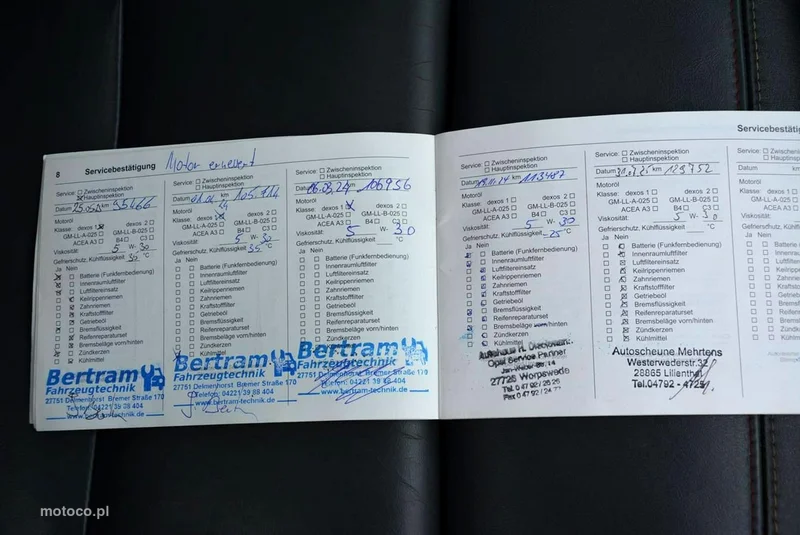 8 Servicebestätigung Motor erneuert
Service: Zwischeninspektion
Hauptinspektion
Datum 25.05.2 km 95466
Motoröl
Klasse: dexos 1 dexos 2
GM-LL-A-025 GM-LL-B-025
ACEA A3 B4 C3
Viskosität: 5 W- 30
Gefrierschutz, Kühlflüssigkeit 30 °C
Ja Nein
Batterie (Funkfernbedienung)
Innenraumluftfilter
Luftfiltereinsatz
Keilrippenriemen
Zahnriemen
Kraftstofffilter
Getriebeöl
Bremsflüssigkeit
Reifenreparaturset
Bremsbeläge vorn/hinten
Zündkerzen
Kühlmittel
Bertram
Fahrzeugtechnik
27751 Delmenhorst Bremer Straße 170
Telefon: 04221 39 88 404
www.bertram-technik.de
Service: Zwischeninspektion
Hauptinspektion
Datum km 105.714
24
Motoröl
Klasse: dexos 1 dexos 2
GM-LL-A-025 GM-LL-B-025
ACEA A3 B4 C3
Viskosität: 5 W- 30
Gefrierschutz, Kühlflüssigkeit 35 °C
Ja Nein
Batterie (Funkfernbedienung)
Innenraumluftfilter
Luftfiltereinsatz
Keilrippenriemen
Zahnriemen
Kraftstofffilter
Getriebeöl
Bremsflüssigkeit
Reifenreparaturset
Bremsbeläge vorn/hinten
Zündkerzen
Kühlmittel
Bertram
Fahrzeugtechnik
27751 Delmenhorst Bremer Straße 170
Telefon: 04221 39 88 404
www.bertram-technik.de
Service: Zwischeninspektion
Hauptinspektion
Datum 06.03.24 km 106956
Motoröl
Klasse: dexos 1 dexos 2
GM-LL-A-025 GM-LL-B-025
ACEA A3 B4 C3
Viskosität: 5 W- 30
Gefrierschutz, Kühlflüssigkeit °C
Ja Nein
Batterie (Funkfernbedienung)
Innenraumluftfilter
Luftfiltereinsatz
Keilrippenriemen
Zahnriemen
Kraftstofffilter
Getriebeöl
Bremsflüssigkeit
Reifenreparaturset
Bremsbeläge vorn/hinten
Zündkerzen
Kühlmittel
Bertram
Fahrzeugtechnik
27751 Delmenhorst Bremer Straße 170
Telefon: 04221 39 88 404
www.bertram-technik.de
Service: Zwischeninspektion
Hauptinspektion
Datum km 113487
Motoröl
Klasse: dexos 1 dexos 2
GM-LL-A-025 GM-LL-B-025
ACEA A3 B4 C3
Viskosität: 5 W- 30
Gefrierschutz, Kühlflüssigkeit -25 °C
Ja Nein
Batterie (Funkfernbedienung)
Innenraumluftfilter
Luftfiltereinsatz
Keilrippenriemen
Zahnriemen
Kraftstofffilter
Getriebeöl
Bremsflüssigkeit
Reifenreparaturset
Bremsbeläge vorn/hinten
Zündkerzen
Kühlmittel
Autohaus
Opel Service Partner
27726 Worpswede
Servicebestätig
Service: Zwischeninspektion
Hauptinspektion
Datum km 129752
Motoröl
Klasse: dexos 1 dexos 2
GM-LL-A-025 GM-LL-B-025
ACEA A3 B4 C3
Viskosität: 5 W- 30
Gefrierschutz, Kühlflüssigkeit °C
Ja Nein
Batterie (Funkfernbedienung)
Innenraumluftfilter
Luftfiltereinsatz
Keilrippenriemen
Zahnriemen
Kraftstofffilter
Getriebeöl
Bremsflüssigkeit
Reifenreparaturset
Bremsbeläge vorn/hinten
Zündkerzen
Kühlmittel
Autoscheune Mehrtens
Westerwederstr.32
28865 Lilienthal
Tel.04792 -
Service: Zw
Ha
Datum
Motoröl
Klasse: dexos
GM-LL-A-02
ACEA A3
Viskosität:
Gefrierschutz, Kü
Ja Nein
Batter
Innenr
Luftfilt
Keilrip
Zahnr
Krafts
Getri
Brem
Reife
Brem
Zünd
Kühl
motoco.pl